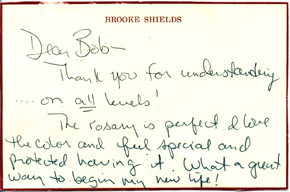 BROOKE SHIELDS
Dear Bob—
Thank you for understanding
....on all levels!
The rosary is perfect I love
the color and feel special and
protected having it. What a great
way to begin my new life!